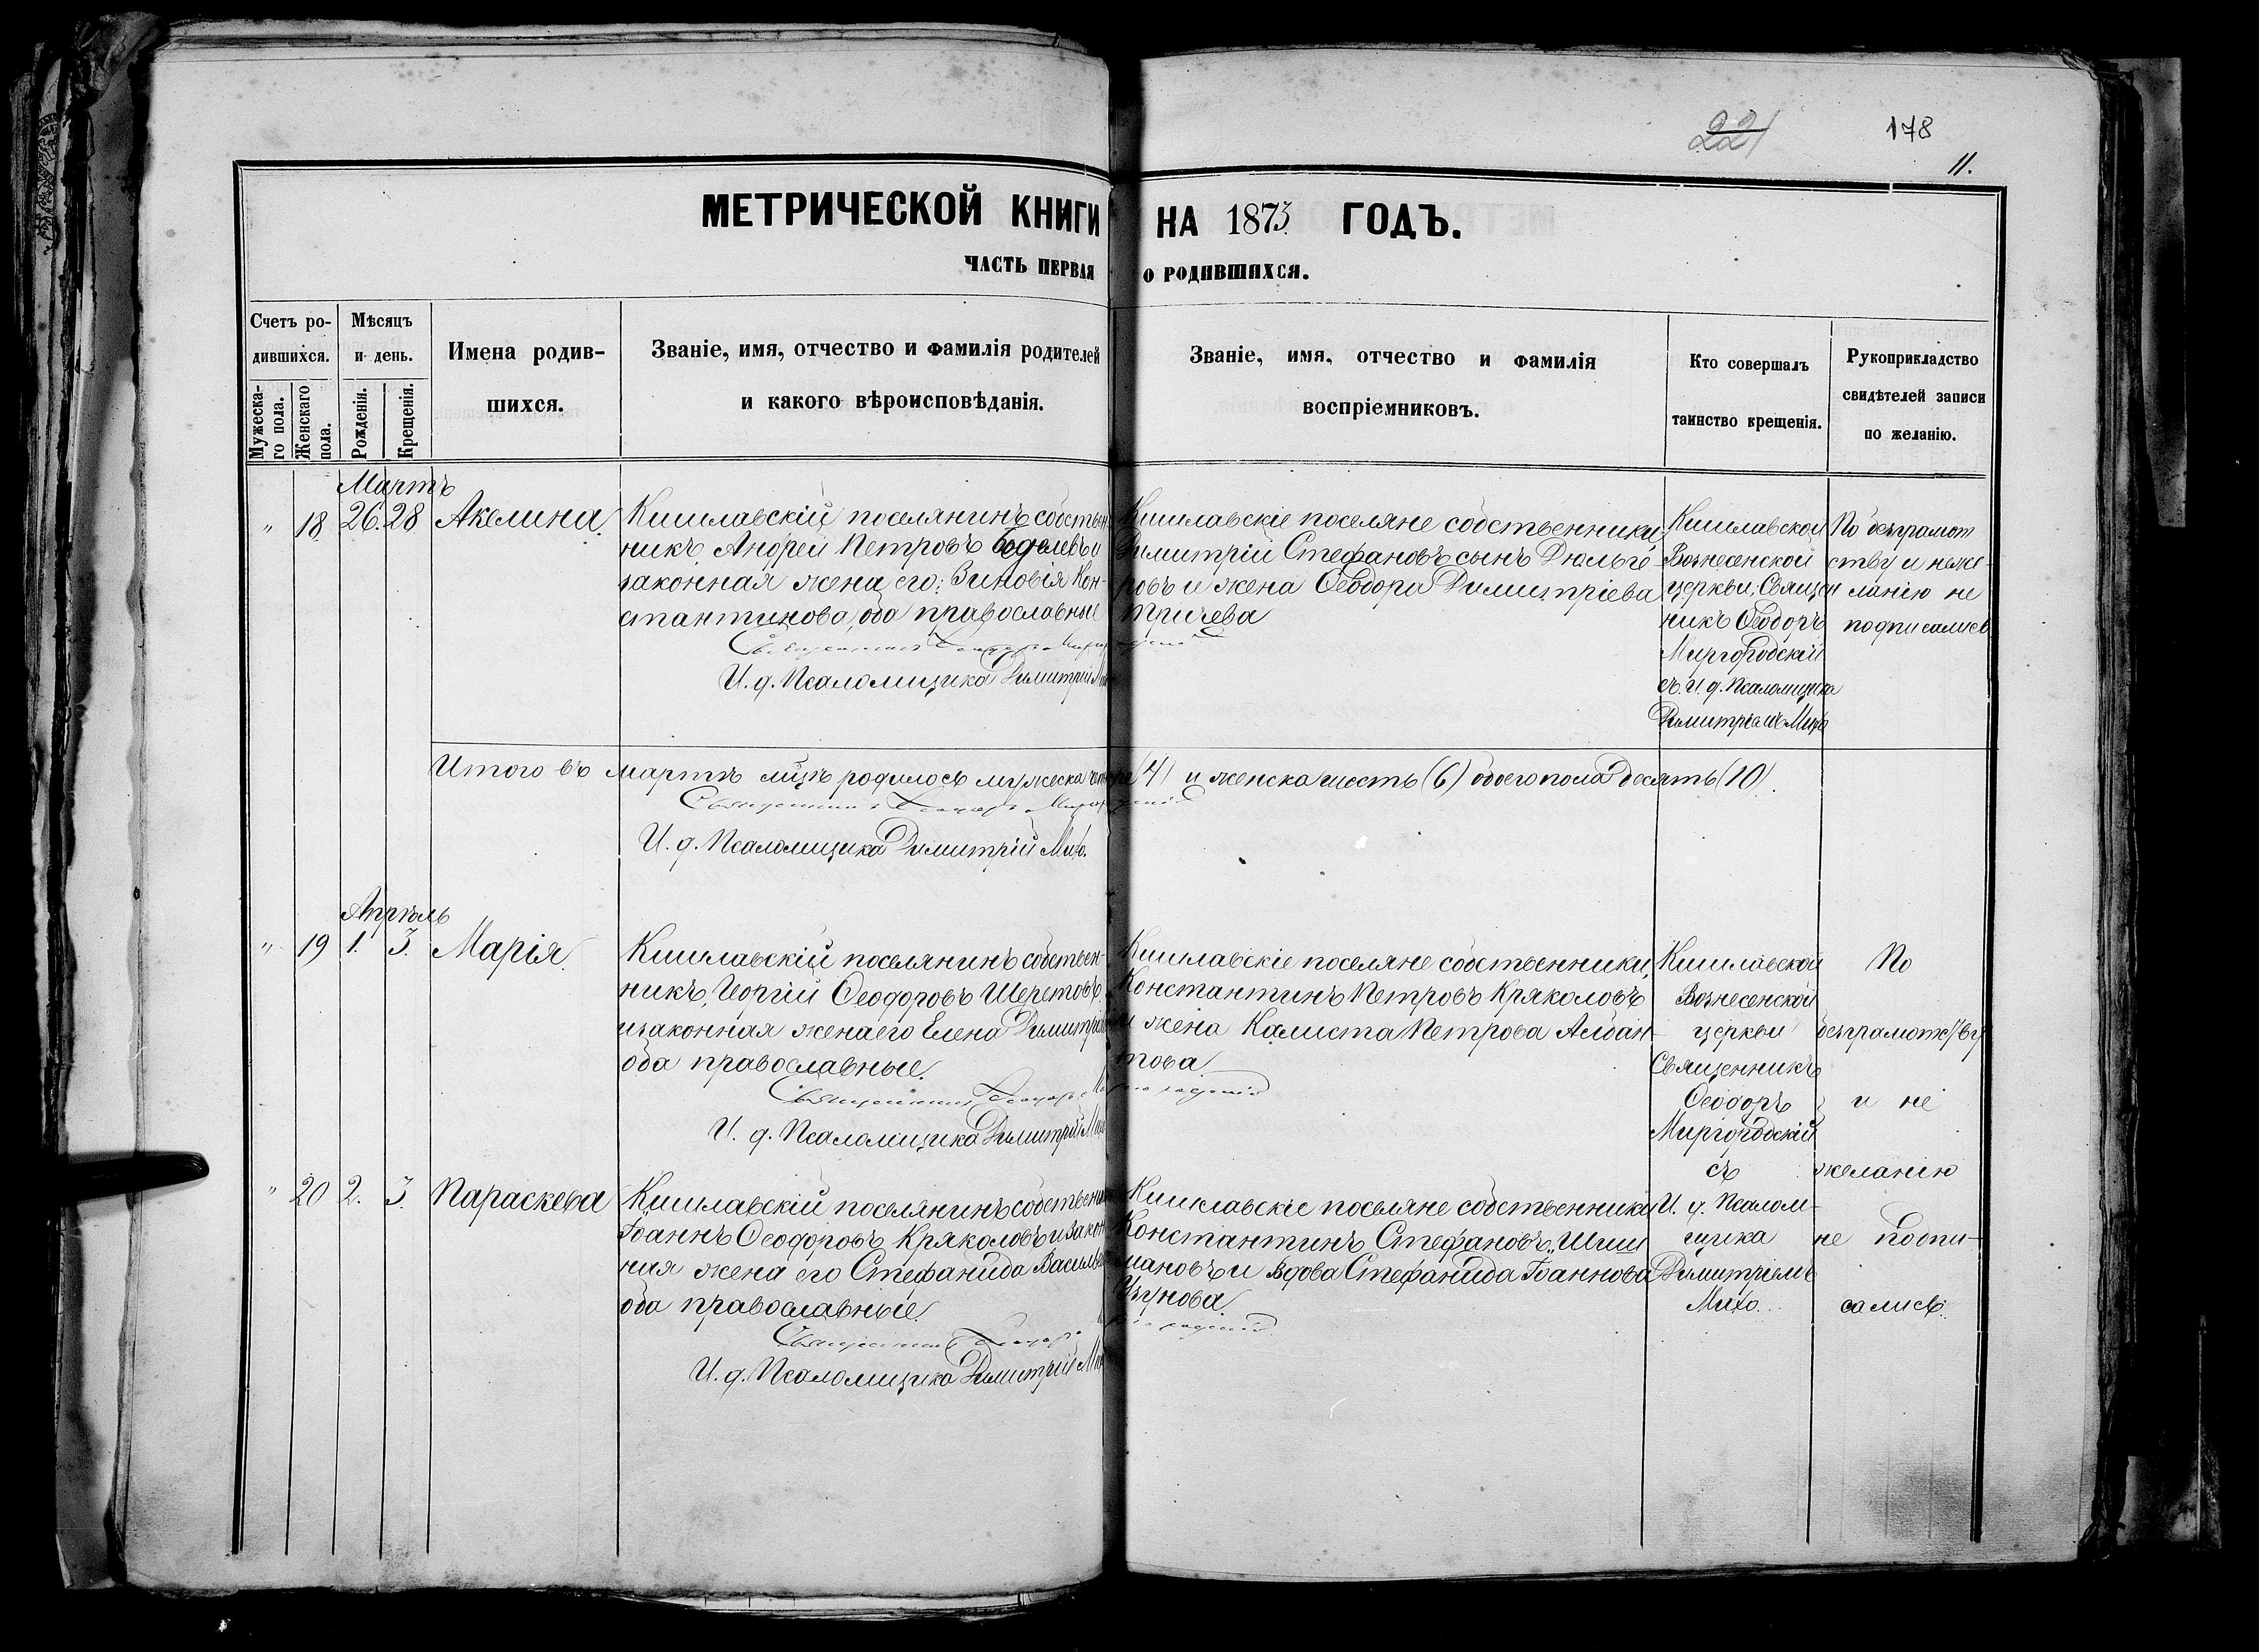 221
178
11.
МЕТРИЧЕСКОЙ КНИГИ НА 1873 ГОДЪ.
ЧАСТЬ ПЕРВАЯ О РОДИВШИХСЯ.
Счетъ ро-
дившихся.
Мужеска-
го пола.
Женскаго
пола.
Мѣсяцъ
и день.
Рожденія.
Крещенія.
Имена родив-
шихся.
Званіе, имя, отчество и фамилія родителей
и какого вѣроисповѣданія.
Званіе, имя, отчество и фамилія
воспріемниковъ.
Кто совершалъ
таинство крещенія.
Рукоприкладство
свидѣтелей записи
по желанію.
Мартъ
" 18 26. 28 Акелина.
Кишлавскій поселянинъ собствен
никъ Андрей Петровъ
законная жена его: Зиновія Кон-
стантинова, оба православные
Священникъ Ѳеодоръ Миргородскій
И. д. Псаломщика Димитрій
Кишлавскіе поселяне собственники,
Димитрій Стефановъ сынъ Дюльге-
ровъ и жена Ѳеодора Димитріева
Тричева
Кишлавской
Вознесенской
церкви, Священ
никъ Ѳеодоръ
Миргородскій
съ И. д. Псаломщика
Димитріемъ Михо
По безграмот
ству и неже-
ланію не
подписались
Итого въ мартѣ мцѣ родилось мужеска четыре (4) и женска шесть (6) обоего пола десять (10).
Священникъ Ѳеодоръ Миргородскій
И. д. Псаломщика Димитрій Михо.
Апрѣль
" 19 1. 3. Марія.
Кишлавскій поселянинъ собствен-
никъ, Георгій Ѳеодоровъ Шеретовъ
и законная жена его Елена Димитріева
оба православные.
Священникъ Ѳеодоръ Миргородскій
И. д. Псаломщика Димитрій
Кишлавскіе поселяне собственники,
Константинъ Петровъ Кряколовъ
и жена Калиста Петрова Албан-
това
Кишлавской
Вознесенской
церкви
Священникъ
Ѳеодоръ
Миргородскій
съ
И. д. Псалом-
щика
Димитріемъ
Михо..
По
безграмотству
и не
желанію
не подпи-
сались.
" 20 2. 3. Параскева
Кишлавскій поселянинъ собственникъ
Іоаннъ Ѳеодоровъ Кряколовъ и закон
ная жена его Стефанида Васильева
оба православные.
Священникъ Ѳеодоръ Миргородскій
И. д. Псаломщика Димитрій
Кишлавскіе поселяне собственники
Константинъ Стефановъ Шиш
мановъ и вдова Стефанида Іоаннова
Узунова.